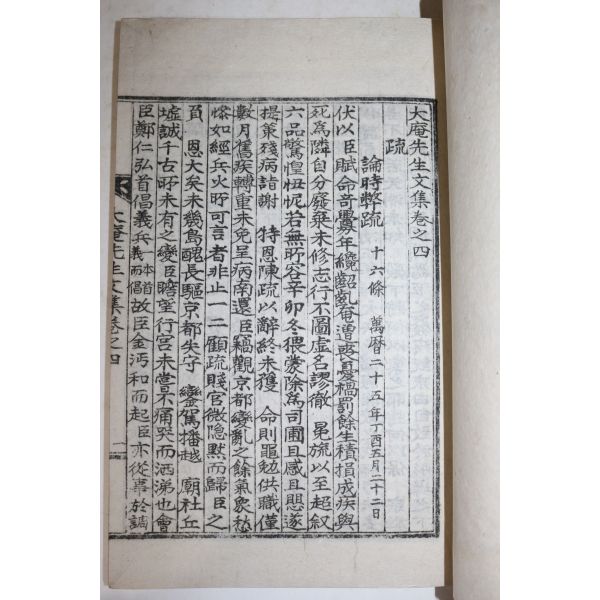 大庵先生文集卷之四
疏
論時弊疏 十六條 萬曆二十五年丁酉五月二十二日
伏以臣賦命奇釁年纔齠齔奄遭喪憂禍罰餘生積損成疾與
死爲隣自分廢棄未修志行不圖虛名謬徹 冕旒以至超敍
六品驚惶忸怩若無所容辛卯冬猥蒙除爲司圃且感且悲遂
提策殘病詣謝 特恩陳疏以辭終未獲 命則黽勉供職僅
數月舊疾轉重未免呈病南還臣竊觀京都變亂之餘氣象愁
慘如經兵火所可言者非止一二顧疏賤官微隱黙而歸臣之
負 恩大矣未幾島醜長驅京都失守 鑾駕播越 廟社丘
墟誠千古所未有之變臣瞻望行宮未嘗不痛哭而洒涕也會
臣鄭仁弘首倡義兵 一本首義而倡 故臣金沔和而起臣亦從事於調
大庵先生文集卷之四 一